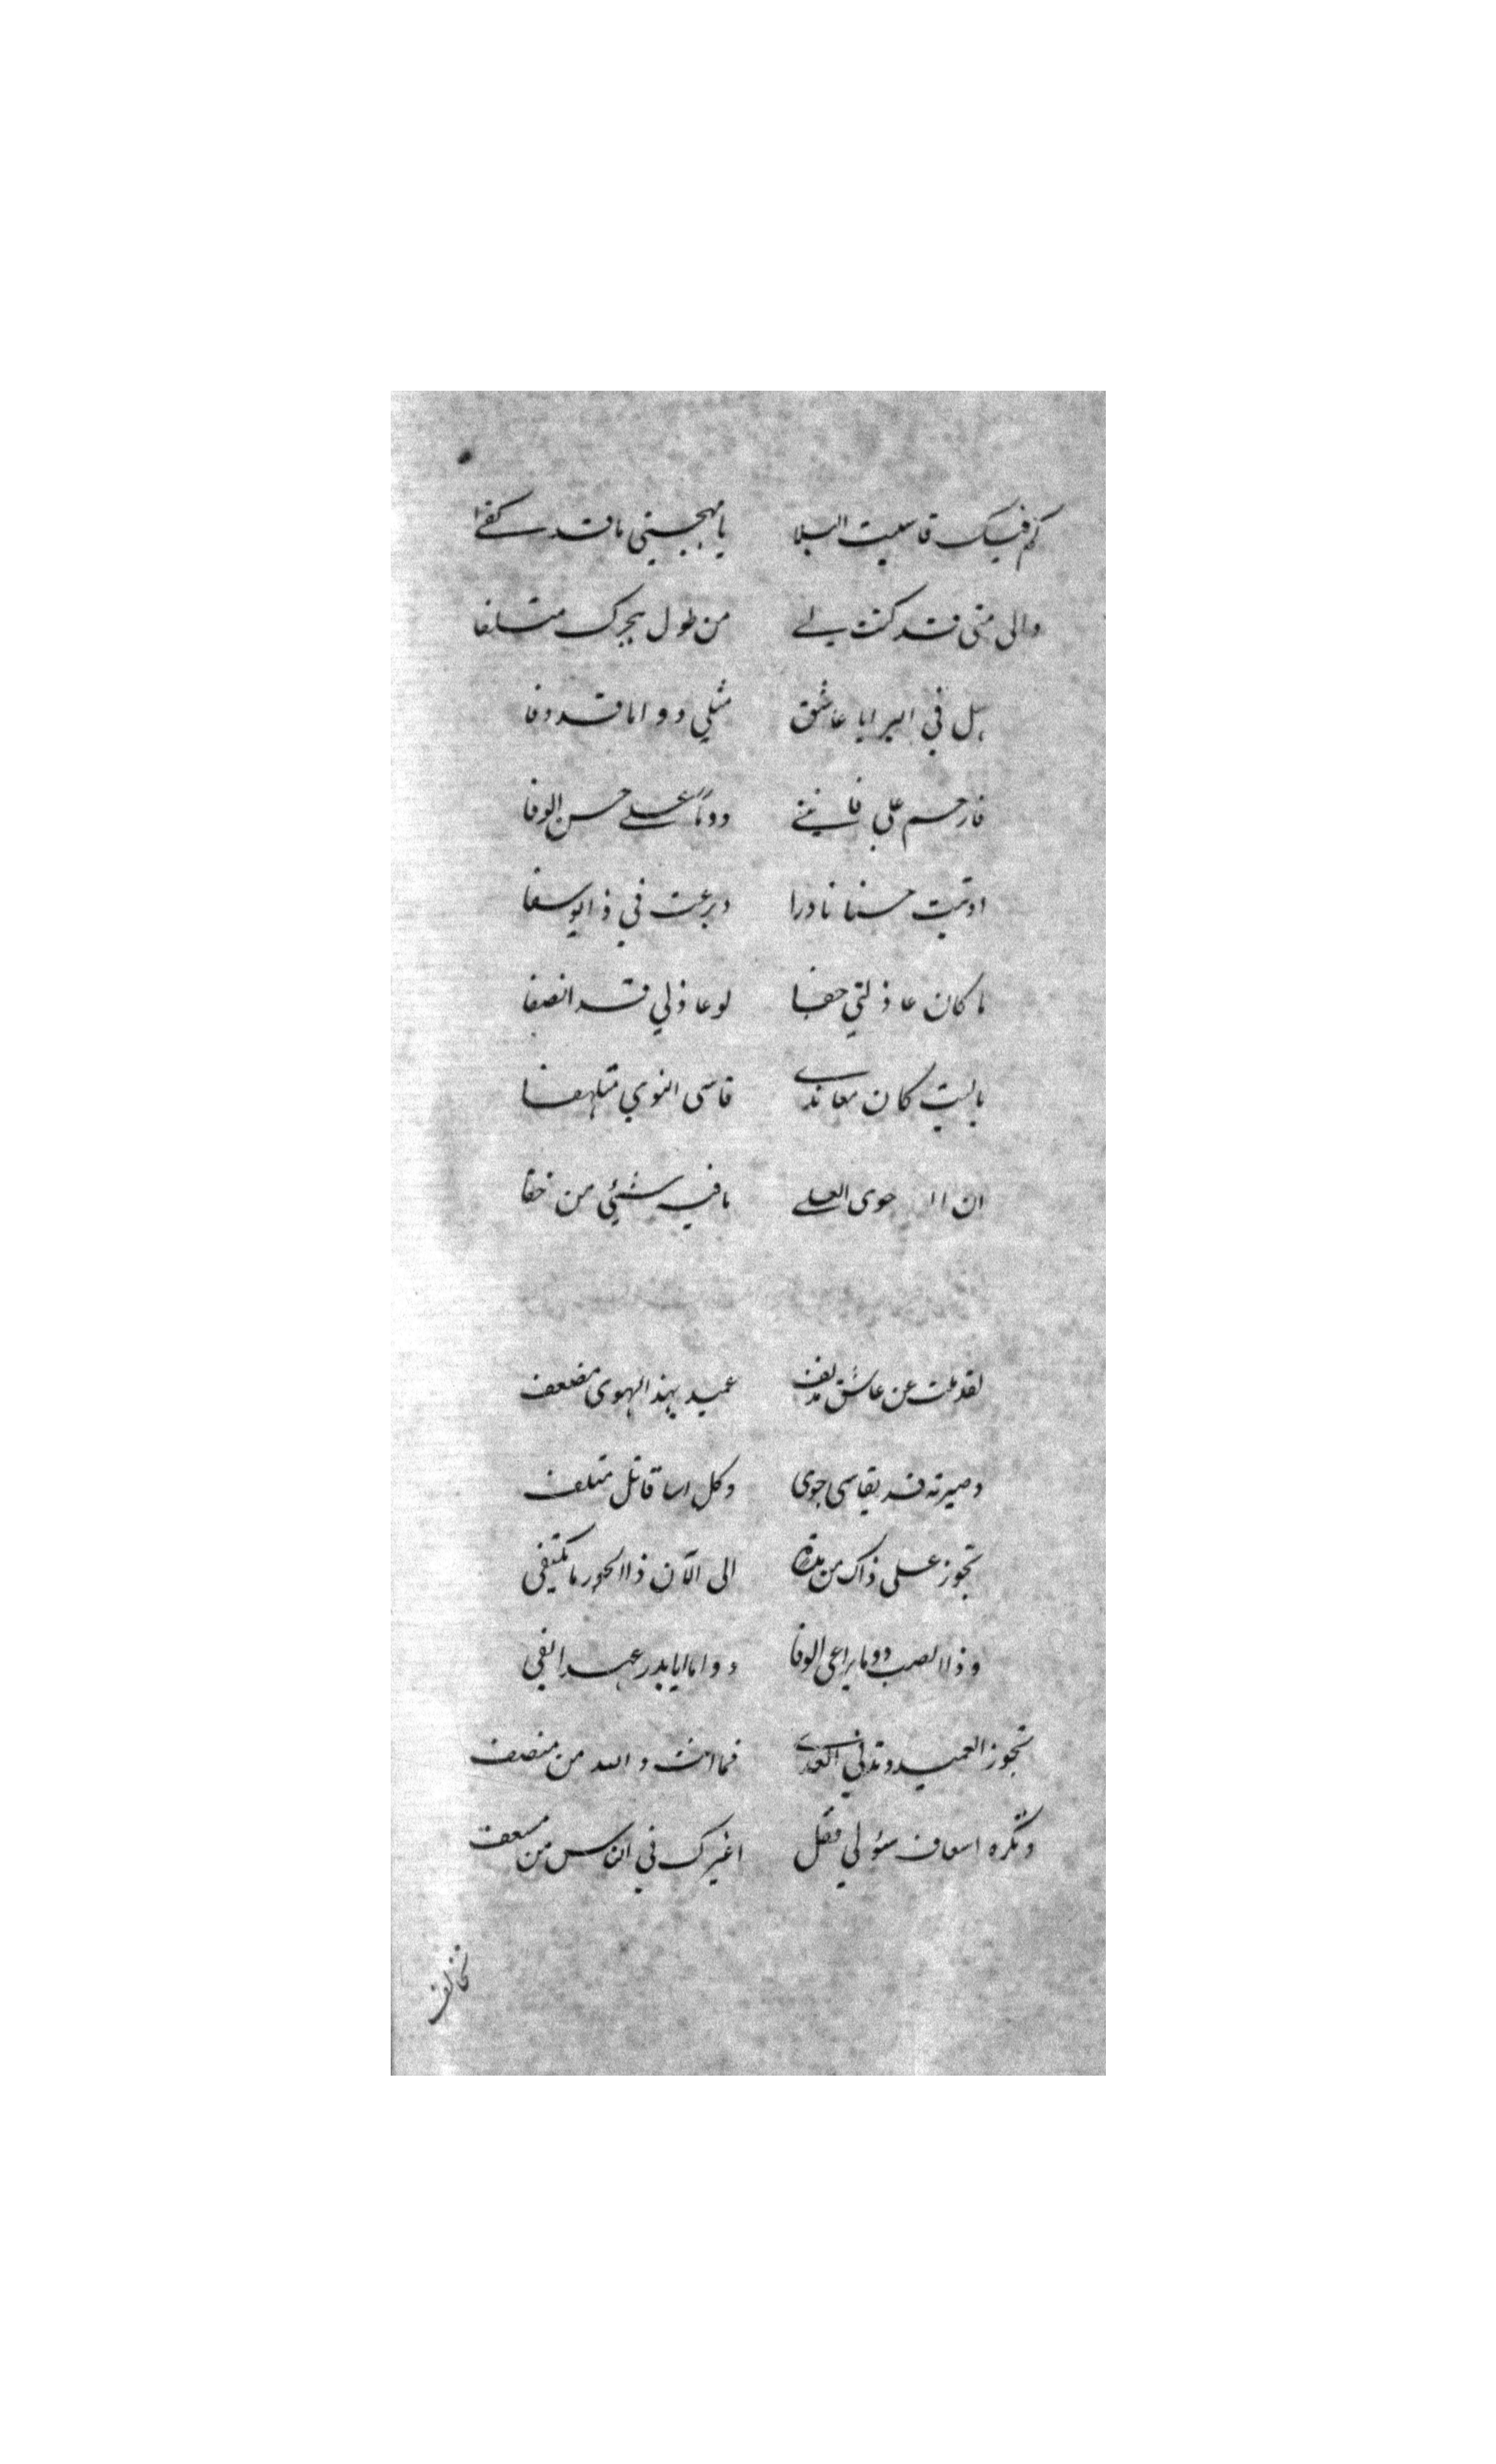 كم فيك قاسيت البلا يا مهجتي ما قد كفا
والى متى قد كنت لي من طول هجرك متلفا
هل في البرايا عاشق مثلي دواما قد وفا
فارحم علي فانني دوماً على حسن الوفا
اوتيت حسنا نادرا وبرعت في ذا يوسفا
ما كان عاذلتي جفا لو عاذلي قد انصفا
ياليت كان معاندي قاسى النوي متلهفا
ان حوى العلي ما فيه شيئي من خفا
لقد ملت عن عاشق مدنف عميد بهذا الهوى مضعف
وصيرته قد يقاسى جوى وكل اسا قاتل متلف
تجوز على ذاك من مدة الى الآن ذا الجور ما تكتفي
وذا الصب دوما يراعى الوفا دواما ايا بدر عهدا لفي
تجوز العميد وتدني العدى فما انت والله من منصف
وتكره اسعاف سؤلي فقل اغيرك في الناس من مسعف
تخالف